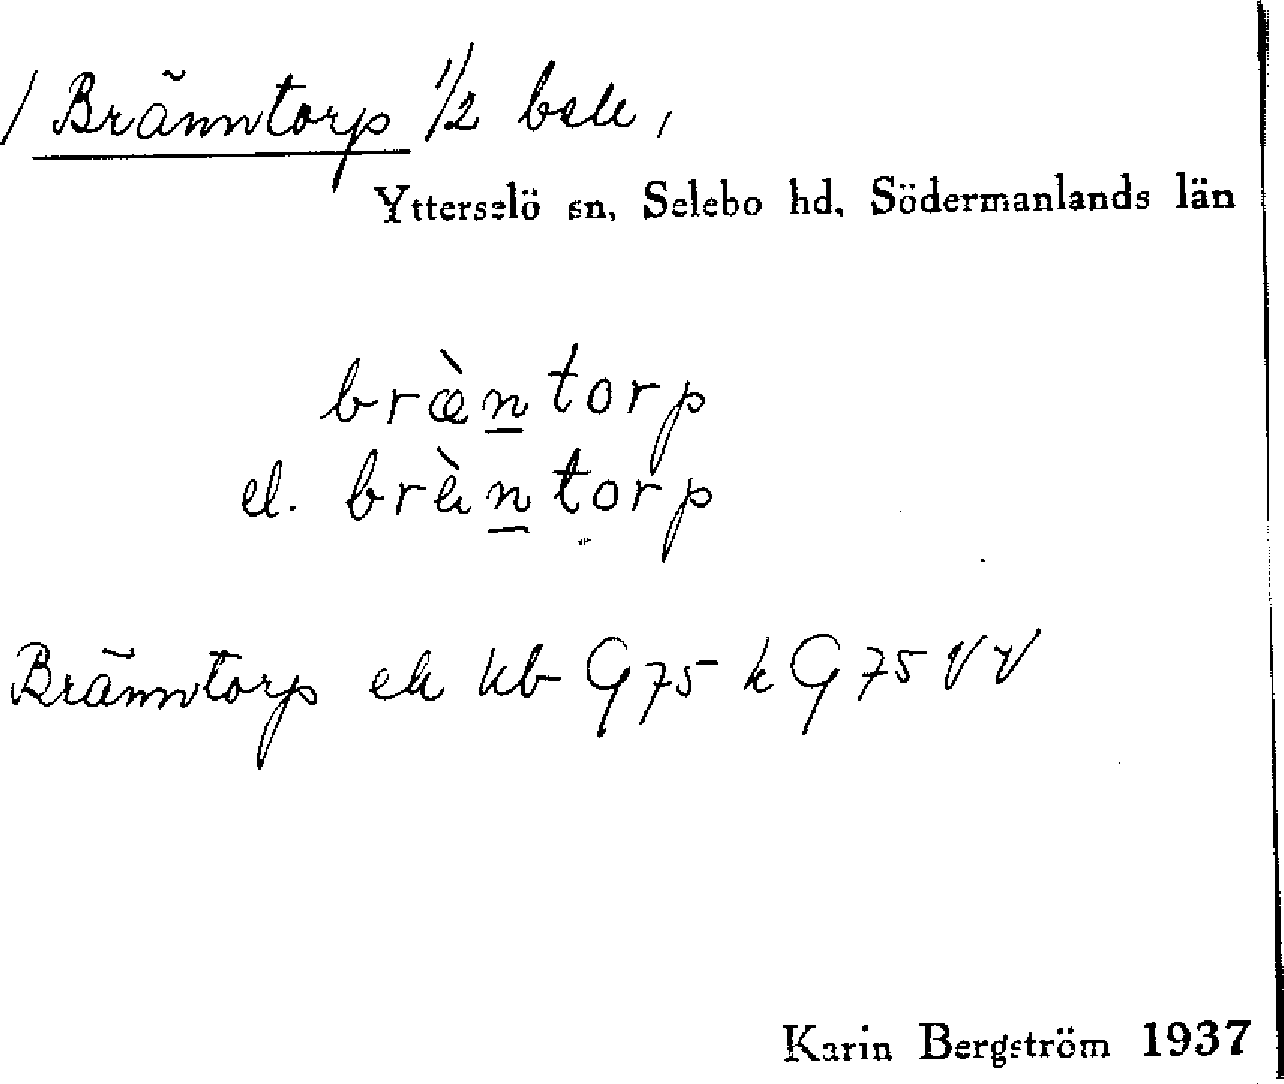 / Bränntorp 1/2 bsle,
Ytterselö sn, Selebo hd, Södermanlands län
bræ̀n̲torp
el. brὲn̲torp
Bränntorp ek kb G 75 k G 75 VV
Karin Bergström 1937